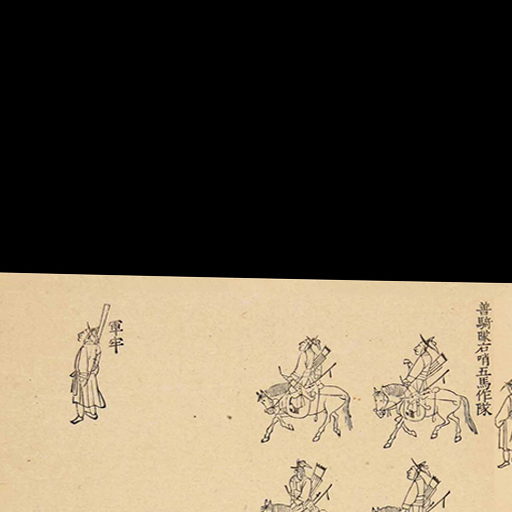 善騎隊右哨五馬作隊
軍牢